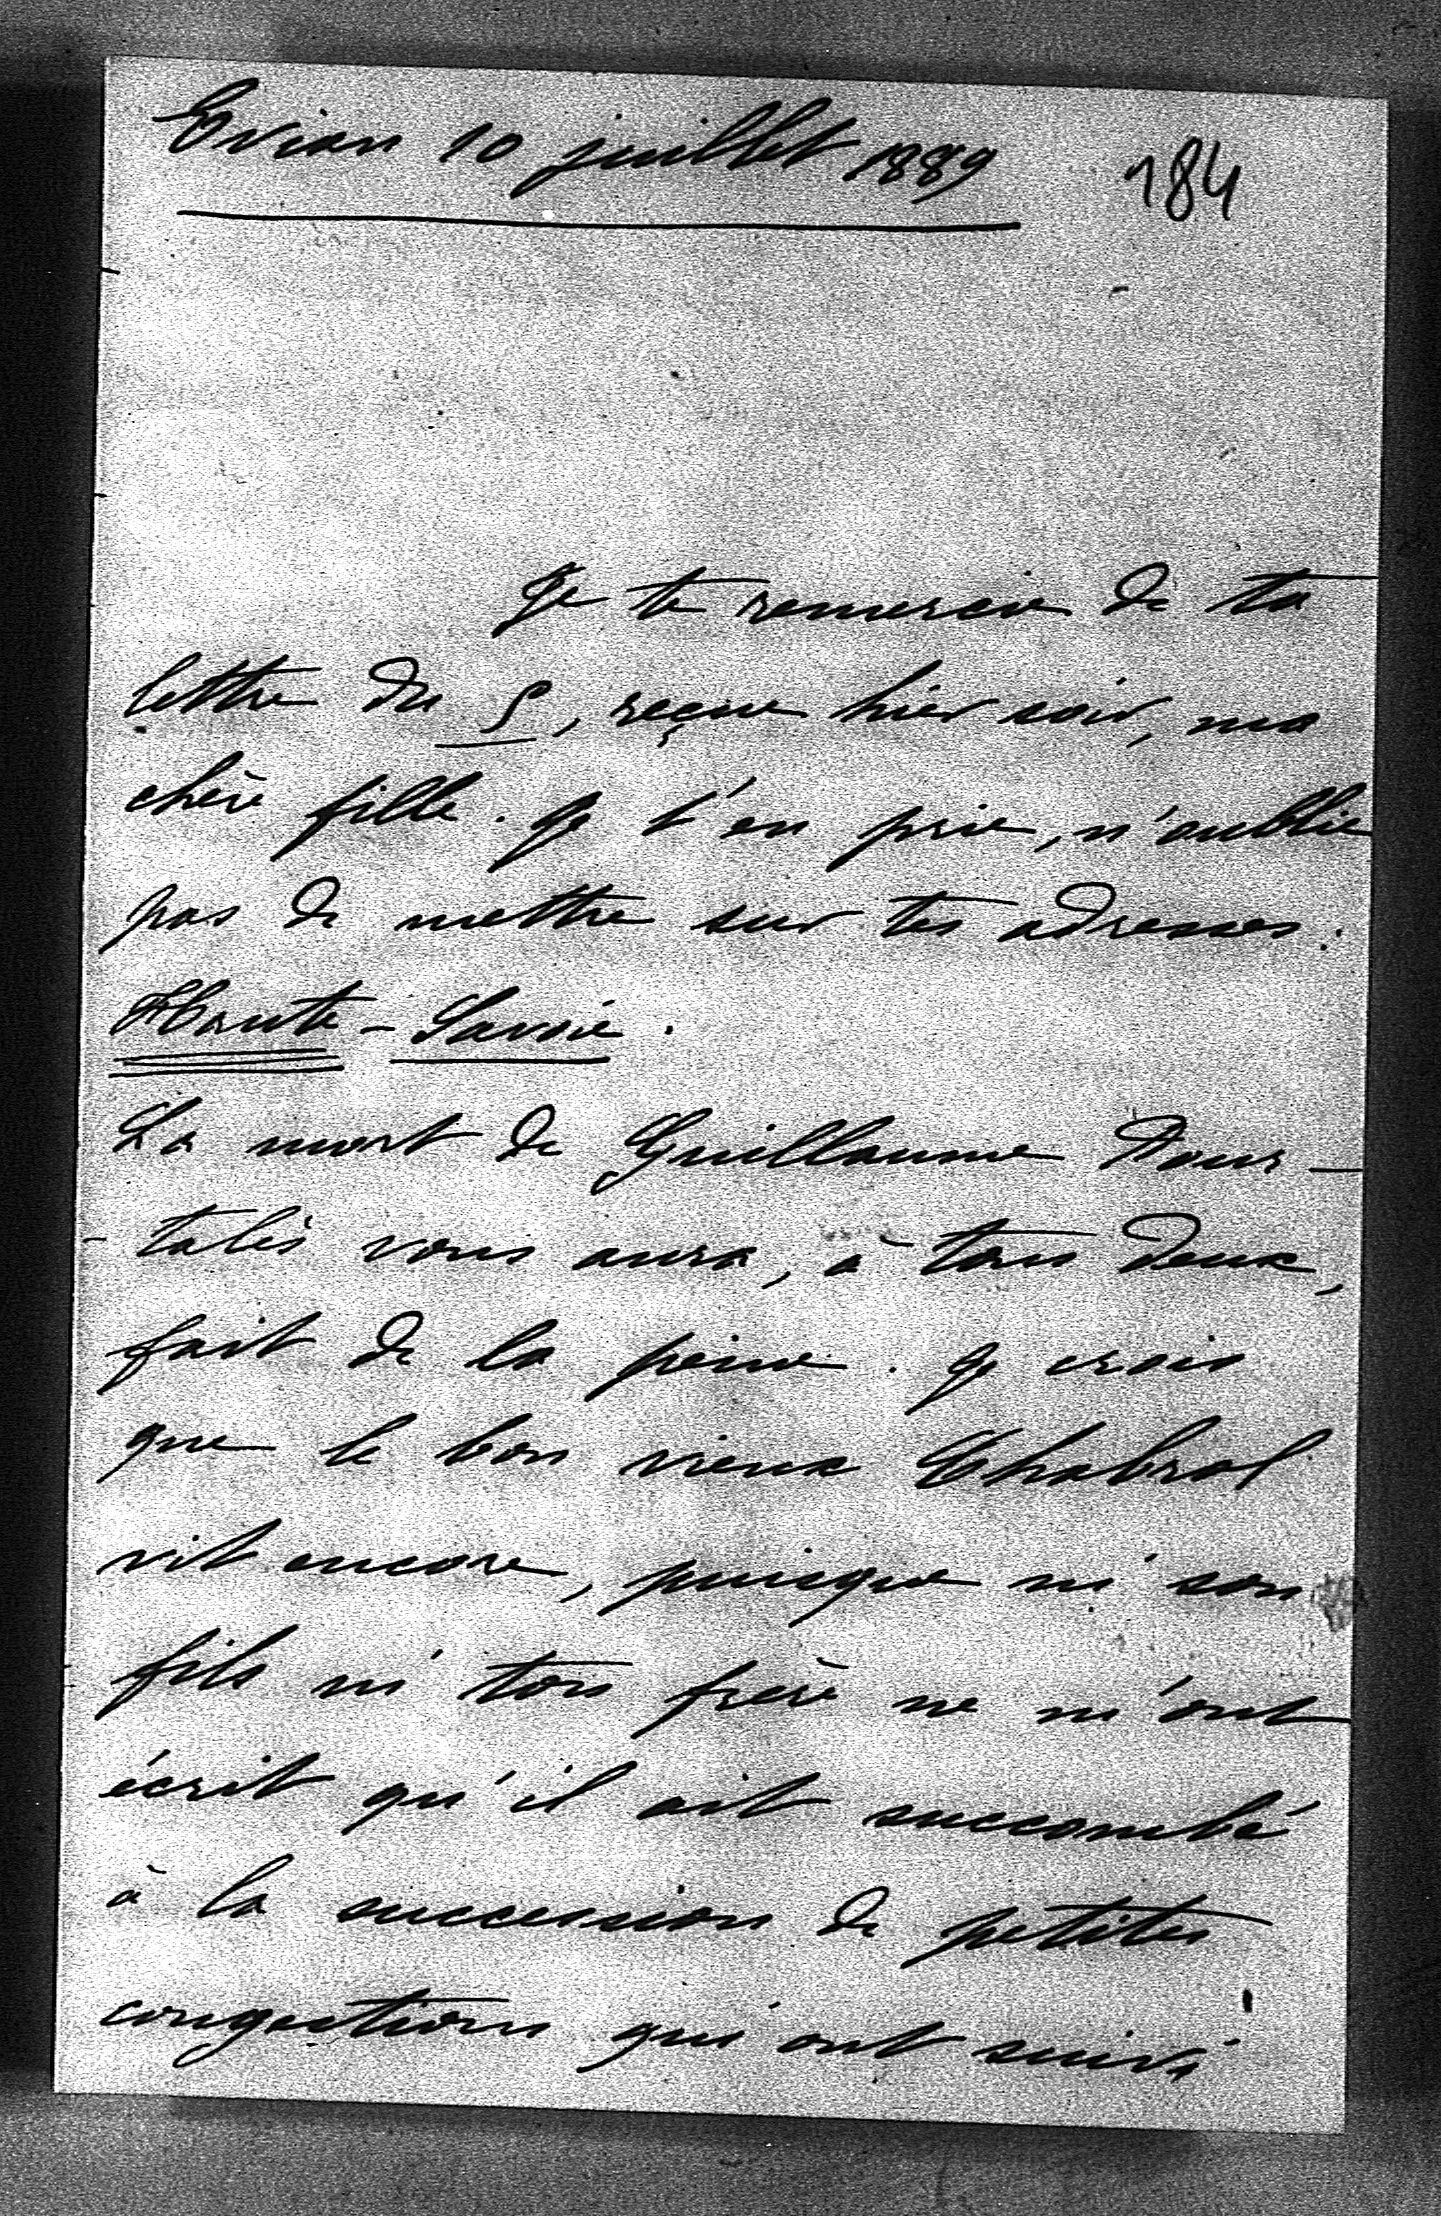 Evian 10 juillet 1889
184
Je te remercie de ta
lettre du 5, reçue hier soir, ma
chère fille. Je t'en prie, n'oublie
pas de mettre sur tes adresses :
Haute-Savoie.
La mort de Guillaume Pour-
-talès vous aura, à tous deux,
fait de la peine. Je crois
que le bon vieux Chabrol
vit encore, puisque ni son
fils ni ton frère ne m'ont
écrit qu'il ait succombé
à la succession de petites
congestions qui ont suivi